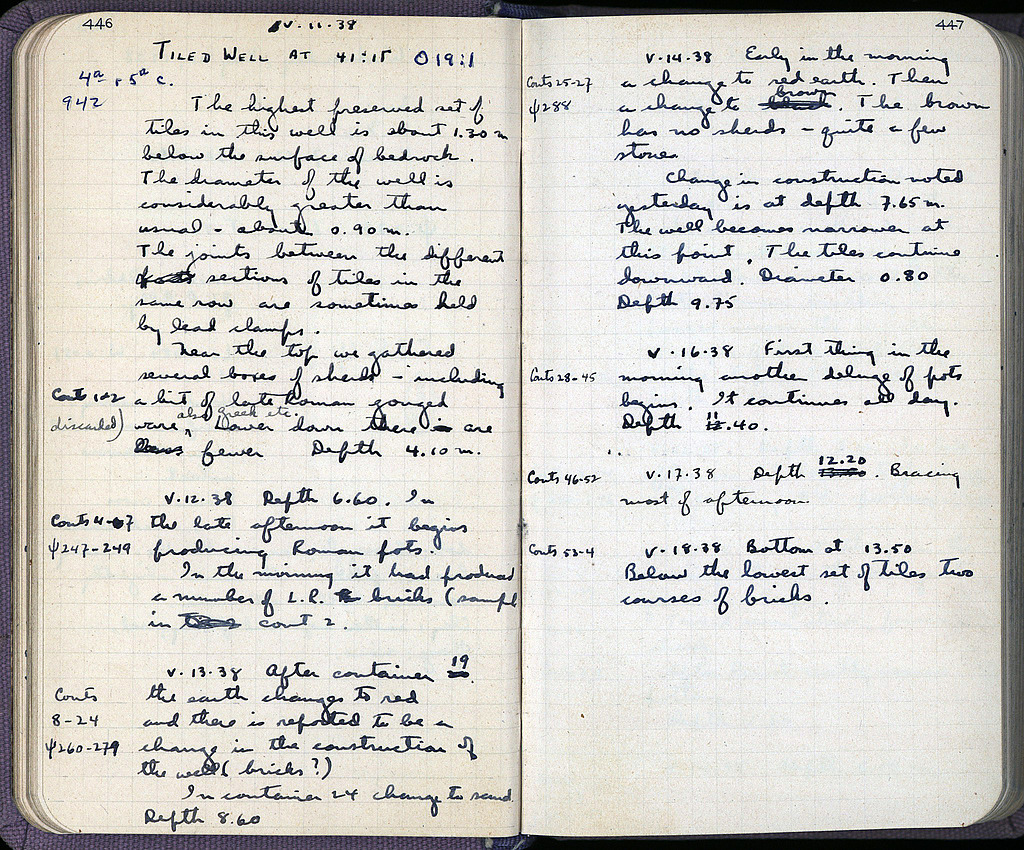 446
V·11·38
TILED WELL AT 41:15 O19:1
4a, 5a c.
942
The highest preserved set of
tiles in this well is about 1.30 m
below the surface of bedrock.
The diameter of the well is
considerably greater than
usual - about 0.90 m.
The joints between the different
sections of tiles in the
same row are sometimes held
by lead clamps.
Near the top we gathered
several boxes of sherds - including
Conts 1+2 a bit of late Roman gouged
discarded) ware, also Greek etc. Lower down there are
fewer Depth 4.10 m.
V·12·38 Depth 6.60. In
Conts 4-7 the late afternoon it begins
ψ247-249 producing Roman pots.
In the morning it had produced
a number of L.R. bricks (sample
in cont 2.
V·13·38 After container 19
Conts the earth changes to red
8-24 and there is reported to be a
ψ260-279 change in the construction of
the well (bricks?)
In container 24 change to sand.
Depth 8.60
447
V·14·38 Early in the morning
Conts 25-27 a change to red earth. Then
ψ288 a change to brown. The brown
has no sherds - quite a few
stones
Change in construction noted
yesterday is at depth 7.65 m.
The well becomes narrower at
this point. The tiles continue
downward. Diameter 0.80
Depth 9.75
V·16·38 First thing in the
Conts 28-45 morning another deluge of pots
begins. It continues all day.
Depth 11.40.
Conts 46-52 V·17·38 Depth 12.20. Bracing
most of afternoon.
Conts 53-4 V·18·38 Bottom at 13.50
Below the lowest set of tiles two
courses of bricks.